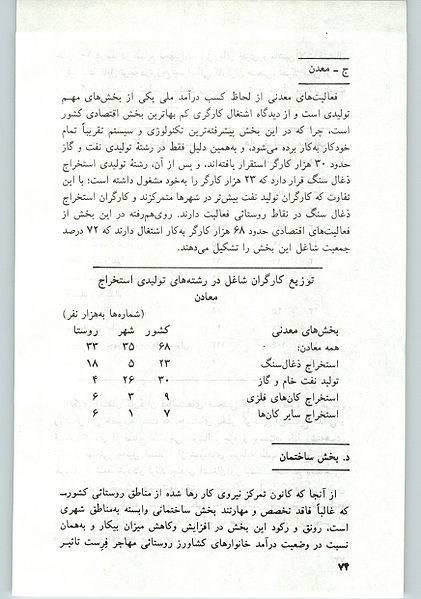 ج ـ معدن
فعالیت‌های معدنی از لحاظ کسب درآمد ملی یکی از بخش‌های مهم
تولیدی است و از دیدگاه اشتغال کارگری کم بهاترین بخش اقتصادی کشور
است، چرا که در این بخش پیشرفته‌ترین تکنولوژی و سیستم تقریباً تمام
خودکار به‌کار برده می‌شود، و به‌همین دلیل فقط در رشتهٔ تولیدی نفت و گاز
حدود ۳۰ هزار کارگر استقرار یافته‌اند، و پس از آن، رشتهٔ تولیدی استخراج
ذغال سنگ قرار دارد که ۲۳ هزار کارگر را به‌خود مشغول داشته است؛ با این
تفاوت که کارگران تولید نفت بیش‌تر در شهرها متمرکزند و کارگران استخراج
ذغال سنگ در نقاط روستائی فعالیت دارند. روی‌هم‌رفته در این بخش از
فعالیت‌های اقتصادی حدود ۶۸ هزار کارگر به‌کار اشتغال دارند که ۷۲ درصد
جمعیت شاغل این بخش را تشکیل می‌دهند.
توزیع کارگران شاغل در رشته‌های تولیدی استخراج
معادن
(شماره‌ها به‌هزار نفر)
بخش‌های معدنی کشور شهر روستا
همه معادن: ۶۸ ۳۵ ۳۳
استخراج ذغال‌سنگ ۲۳ ۵ ۱۸
تولید نفت خام و گاز ۳۰ ۲۶ ۴
استخراج کان‌های فلزی ۹ ۳ ۶
استخراج سایر کان‌ها ۷ ۱ ۶
د. بخش ساختمان
از آنجا که کانون تمرکز نیروی کار رها شده از مناطق روستائی کشورـ
که غالباً فاقد تخصص و مهارتند بخش ساختمانی وابسته به‌مناطق شهری
است، رونق و رکود این بخش در افزایش وکاهش میزان بیکار و به‌همان
نسبت در وضعیت درآمد خانوارهای کشاورز روستائی مهاجر فِرِست تاثیر
۷۴